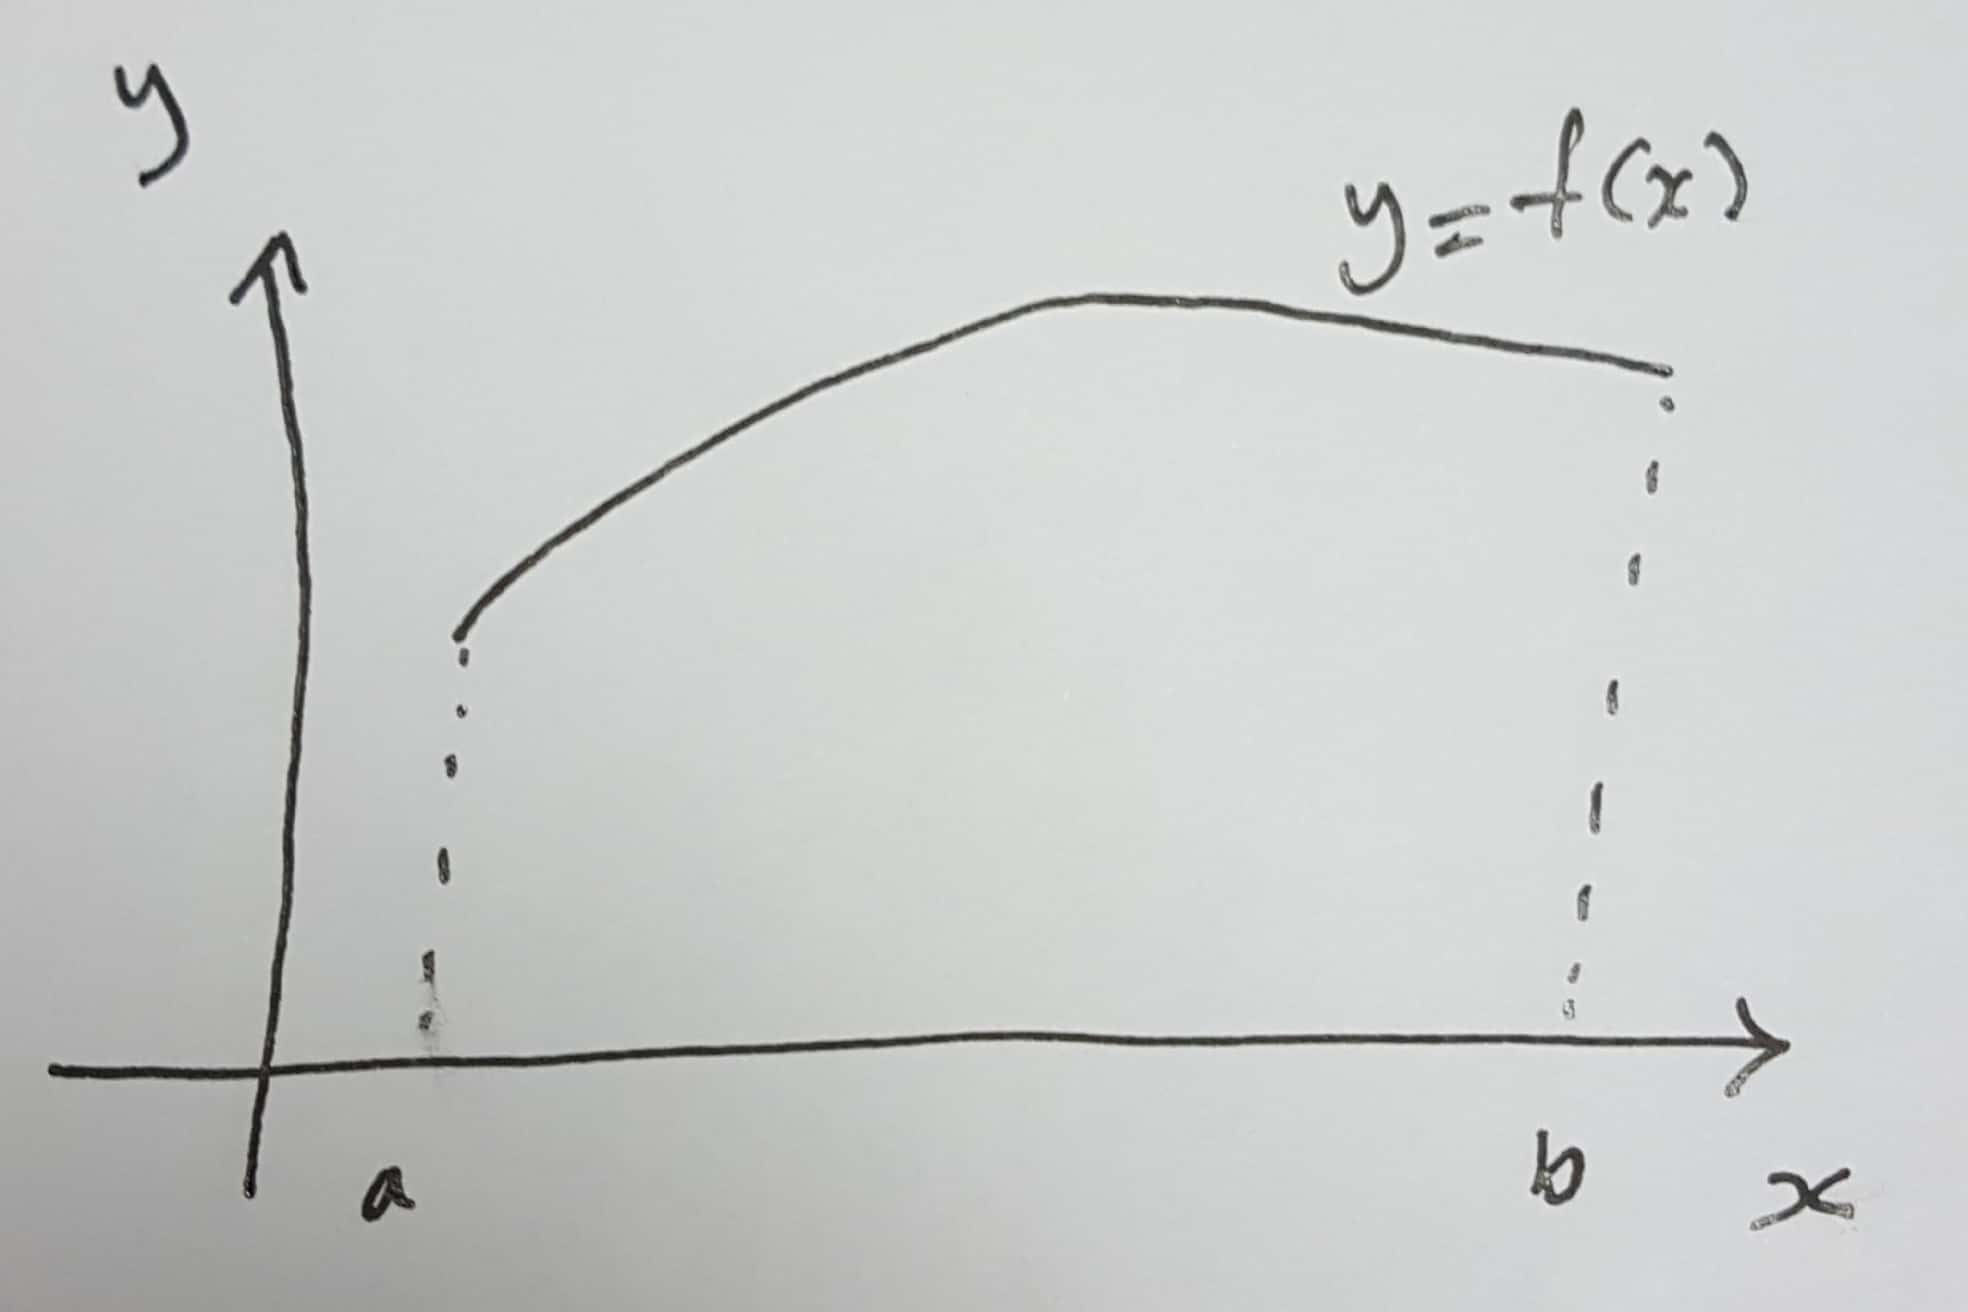 y
y=f(x)
a
b
x